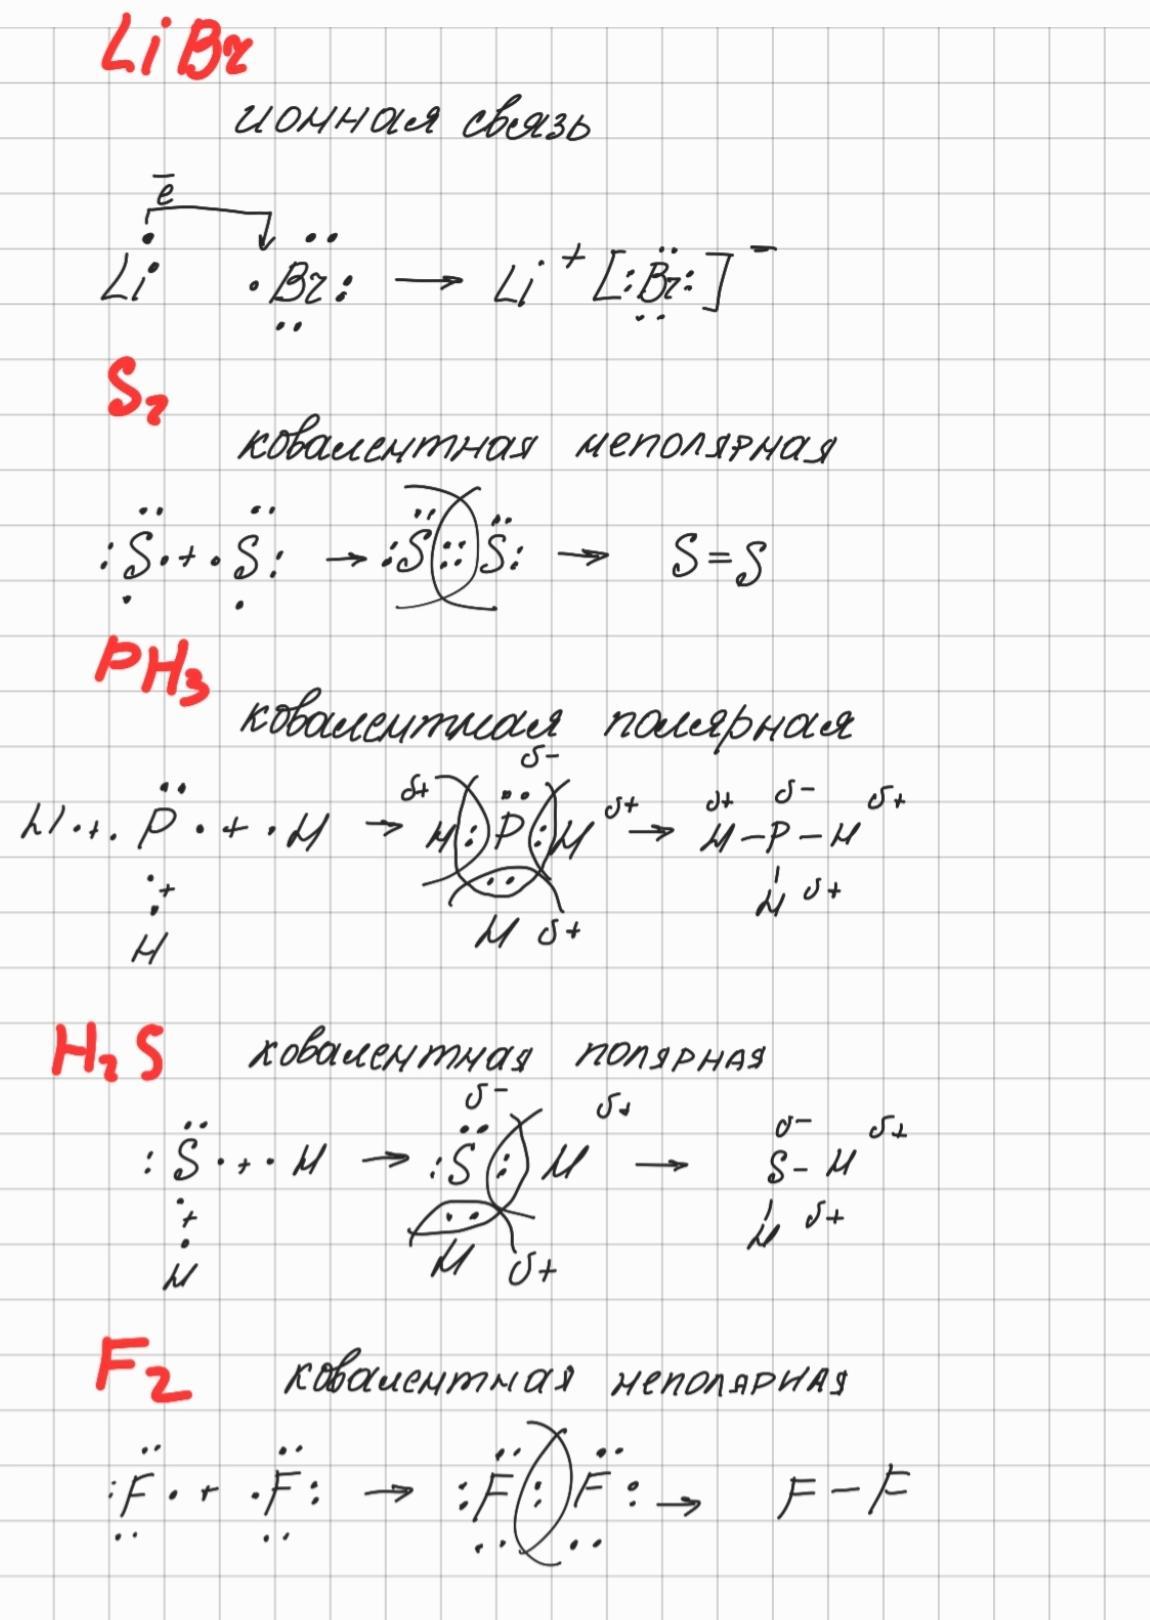 LiBr
ионная связь
ē
Li· ·Br: → Li⁺ [:Br:]⁻
S₂
ковалентная неполярная
:S· + ·S: → :S::S: → S=S
PH₃
ковалентная полярная
δ-
δ+ δ+ δ+ δ- δ+
H· + ·P· + ·H → H:P:H → H–P–H
+ H δ+
H H δ+
H₂S ковалентная полярная
δ- δ+ δ- δ+
:S· + ·H → :S:H → S–H
+ H δ+
H H δ+
F₂ ковалентная неполярная
:F· + ·F: → :F:F: → F–F